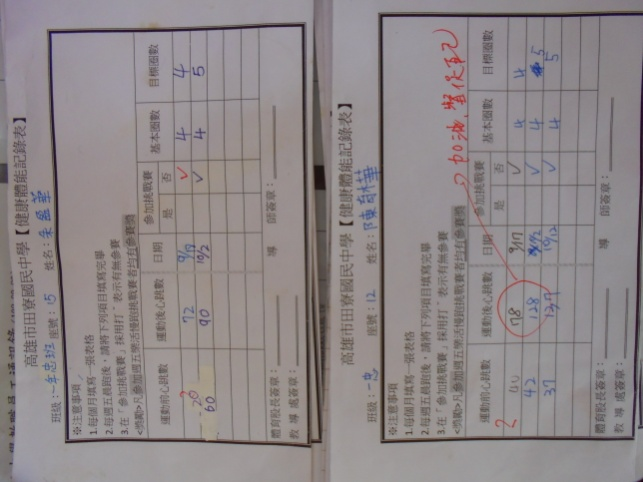 高雄市田寮國民中學【健康體能記錄表】
班級:一年忠班 座號:15 姓名:
※注意事項
1.每個月填寫一張表格
2.每週五晨跑後,請將下列項目填寫完畢
3.在「參加挑戰賽」採用打ˇ表示有無參賽
<獎勵>凡參加週五樂活慢跑挑戰賽者均有參賽獎
運動前心跳數 運動後心跳數 日期 參加挑戰賽 是 否 基本圈數 目標圈數
72 9/19 ✓ 4 4
60 90 10/2 ✓ 4 5
體育股長簽章: 導 師簽章:
教 導 處簽章:
高雄市田寮國民中學【健康體能記錄表】
班級:一忠 座號:12 姓名:陳
※注意事項
1.每個月填寫一張表格
2.每週五晨跑後,請將下列項目填寫完畢
3.在「參加挑戰賽」採用打ˇ表示有無參賽
<獎勵>凡參加週五樂活慢跑挑戰賽者均有參賽獎
加油
運動前心跳數 運動後心跳數 日期 參加挑戰賽 是 否 基本圈數 目標圈數
? 40 178 9/17 ✓ 4 4
42 128 ✓ 4 5
37 137 10/12 ✓ 4 5
體育股長簽章: 導 師簽章:
教 導 處簽章: